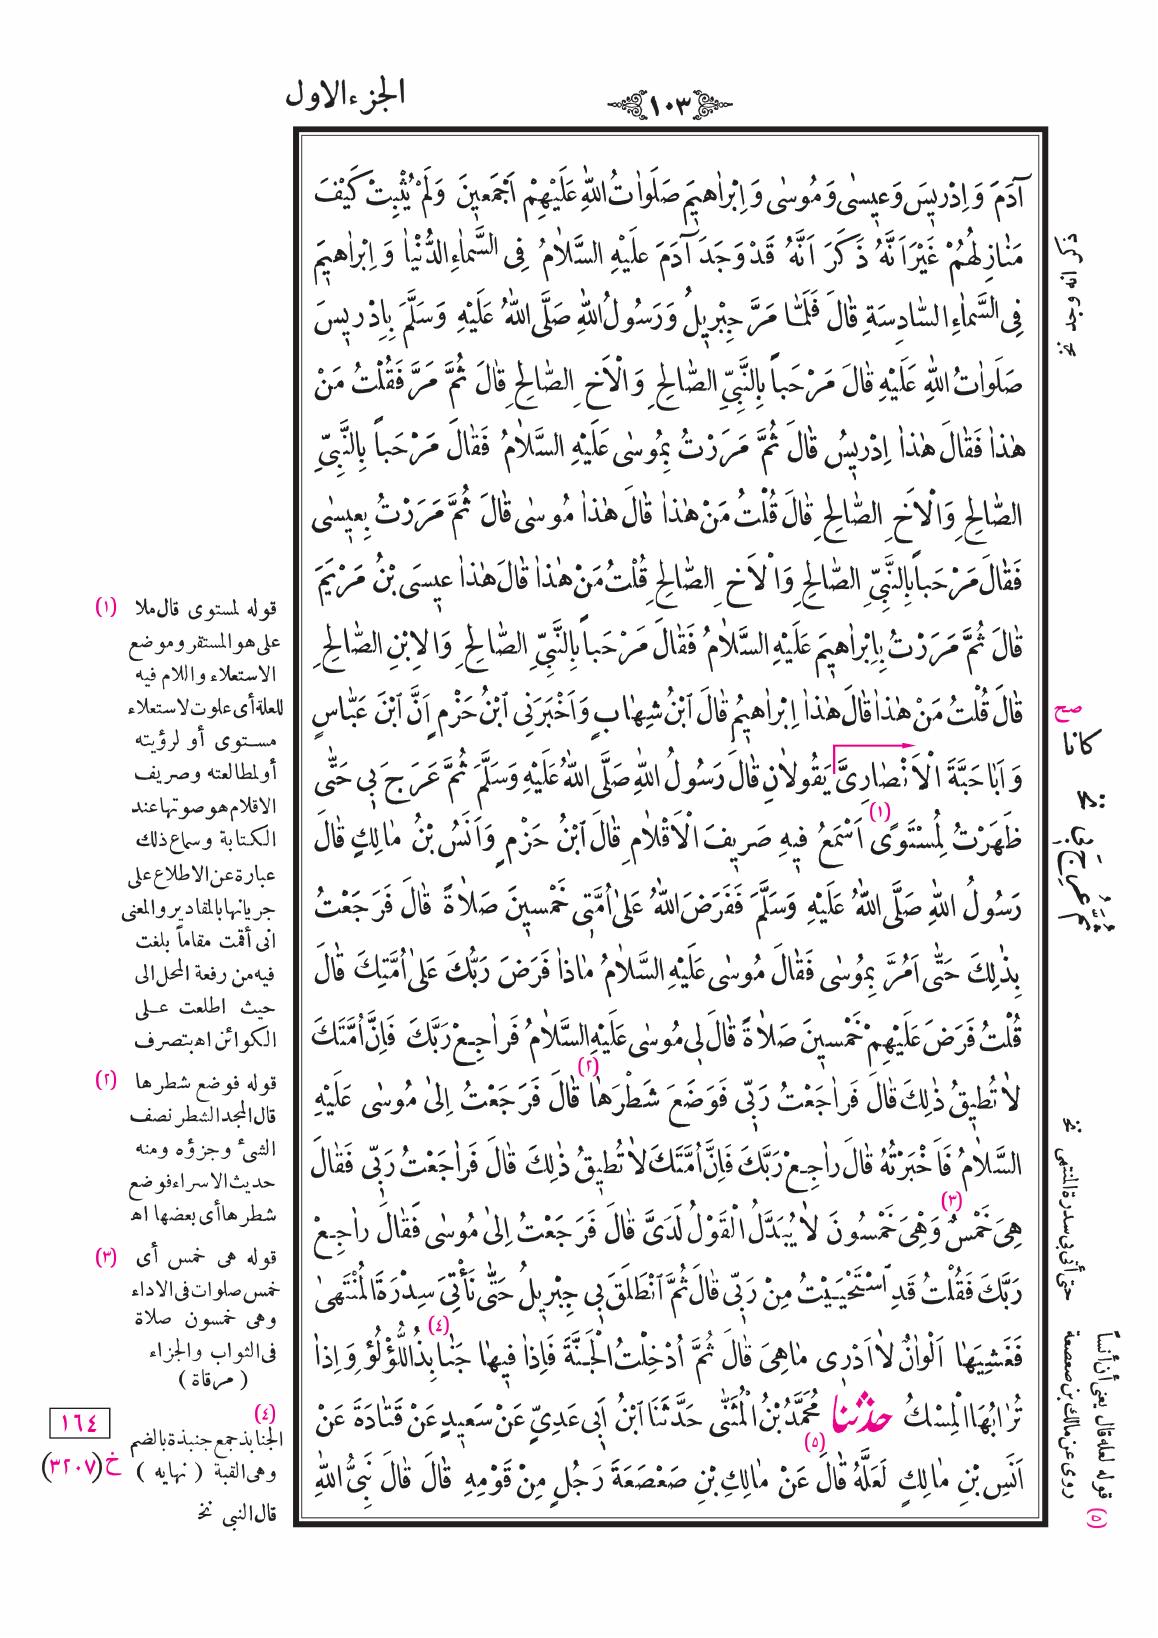 الجزء الاول
١٠٣
آدَمَ وَاِدْرِيسَ وَعِيسٰى وَمُوسٰى وَاِبْرَاهِيمَ صَلَوَاتُ اللّٰهِ عَلَيْهِمْ اَجْمَعِينَ وَلَمْ يُثْبِتْ كَيْفَ
مَنَازِلُهُمْ غَيْرَ اَنَّهُ ذَكَرَ اَنَّهُ قَدْ وَجَدَ آدَمَ عَلَيْهِ السَّلَامُ فِى السَّمَاءِ الدُّنْيَا وَاِبْرَاهِيمَ
فِى السَّمَاءِ السَّادِسَةِ قَالَ فَلَمَّا مَرَّ جِبْرِيلُ وَرَسُولُ اللّٰهِ صَلَّى اللّٰهُ عَلَيْهِ وَسَلَّمَ بِاِدْرِيسَ
صَلَوَاتُ اللّٰهِ عَلَيْهِ قَالَ مَرْحَباً بِالنَّبِيِّ الصَّالِحِ وَالْاَخِ الصَّالِحِ قَالَ ثُمَّ مَرَّ فَقُلْتُ مَنْ
هٰذَا فَقَالَ هٰذَا اِدْرِيسُ قَالَ ثُمَّ مَرَرْتُ بِمُوسٰى عَلَيْهِ السَّلَامُ فَقَالَ مَرْحَباً بِالنَّبِيِّ
الصَّالِحِ وَالْاَخِ الصَّالِحِ قَالَ قُلْتُ مَنْ هٰذَا قَالَ هٰذَا مُوسٰى قَالَ ثُمَّ مَرَرْتُ بِعِيسٰى
فَقَالَ مَرْحَباً بِالنَّبِيِّ الصَّالِحِ وَالْاَخِ الصَّالِحِ قُلْتُ مَنْ هٰذَا قَالَ هٰذَا عِيسَى بْنُ مَرْيَمَ
قَالَ ثُمَّ مَرَرْتُ بِاِبْرَاهِيمَ عَلَيْهِ السَّلَامُ فَقَالَ مَرْحَباً بِالنَّبِيِّ الصَّالِحِ وَالِابْنِ الصَّالِحِ
قَالَ قُلْتُ مَنْ هٰذَا قَالَ هٰذَا اِبْرَاهِيمُ قَالَ ابْنُ شِهَابٍ وَاَخْبَرَنِى ابْنُ حَزْمٍ اَنَّ ابْنَ عَبَّاسٍ
وَاَبَا حَبَّةَ الْاَنْصَارِيَّ يَقُولَانِ قَالَ رَسُولُ اللّٰهِ صَلَّى اللّٰهُ عَلَيْهِ وَسَلَّمَ ثُمَّ عَرَجَ بِى حَتّٰى
ظَهَرْتُ لِمُسْتَوًى (١) اَسْمَعُ فِيهِ صَرِيفَ الْاَقْلَامِ قَالَ ابْنُ حَزْمٍ وَاَنَسُ بْنُ مَالِكٍ قَالَ
رَسُولُ اللّٰهِ صَلَّى اللّٰهُ عَلَيْهِ وَسَلَّمَ فَفَرَضَ اللّٰهُ عَلٰى اُمَّتِى خَمْسِينَ صَلَاةً قَالَ فَرَجَعْتُ
بِذٰلِكَ حَتّٰى اَمُرَّ بِمُوسٰى فَقَالَ مُوسٰى عَلَيْهِ السَّلَامُ مَاذَا فَرَضَ رَبُّكَ عَلٰى اُمَّتِكَ قَالَ
قُلْتُ فَرَضَ عَلَيْهِمْ خَمْسِينَ صَلَاةً قَالَ لِى مُوسٰى عَلَيْهِ السَّلَامُ فَرَاجِعْ رَبَّكَ فَاِنَّ اُمَّتَكَ
لَا تُطِيقُ ذٰلِكَ قَالَ فَرَاجَعْتُ رَبِّى فَوَضَعَ شَطْرَهَا (٢) قَالَ فَرَجَعْتُ اِلٰى مُوسٰى عَلَيْهِ
السَّلَامُ فَاَخْبَرْتُهُ قَالَ رَاجِعْ رَبَّكَ فَاِنَّ اُمَّتَكَ لَا تُطِيقُ ذٰلِكَ قَالَ فَرَاجَعْتُ رَبِّى فَقَالَ
هِىَ خَمْسٌ (٣) وَهْىَ خَمْسُونَ لَا يُبَدَّلُ الْقَوْلُ لَدَىَّ قَالَ فَرَجَعْتُ اِلٰى مُوسٰى فَقَالَ رَاجِعْ
رَبَّكَ فَقُلْتُ قَدِ اسْتَحْيَيْتُ مِنْ رَبِّى قَالَ ثُمَّ انْطَلَقَ بِى جِبْرِيلُ حَتّٰى نَأْتِىَ سِدْرَةَ الْمُنْتَهٰى
فَغَشِيَهَا اَلْوَانٌ لَا اَدْرِى مَاهِىَ قَالَ ثُمَّ اُدْخِلْتُ الْجَنَّةَ فَاِذَا فِيهَا جَنَابِذُ (٤) اللُّؤْلُؤِ وَاِذَا
تُرَابُهَا الْمِسْكُ حدثنا مُحَمَّدُ بْنُ الْمُثَنّٰى حَدَّثَنَا ابْنُ اَبِى عَدِىٍّ عَنْ سَعِيدٍ عَنْ قَتَادَةَ عَنْ
اَنَسِ بْنِ مَالِكٍ لَعَلَّهُ قَالَ (٥) عَنْ مَالِكِ بْنِ صَعْصَعَةَ رَجُلٍ مِنْ قَوْمِهِ قَالَ قَالَ نَبِىُّ اللّٰهِ
(١) قوله لمستوى قال ملا
على هو المستقر وموضع
الاستعلاء واللام فيه
للعلة أى علوت لاستعلاء
مستوى أو لرؤيته
أو لمطالعته وصريف
الاقلام هو صوتها عند
الكتابة وسماع ذلك
عبارة عن الاطلاع على
جريانها بالمقادير والمعنى
انى أقمت مقاماً بلغت
فيه من رفعة المحل الى
حيث اطلعت على
الكوائن اه بتصرف
(٢) قوله فوضع شطرها
قال المجد الشطر نصف
الشىء وجزؤه ومنه
حديث الاسراء فوضع
شطرها أى بعضها اه
(٣) قوله هى خمس أى
خمس صلوات فى الاداء
وهى خمسون صلاة
فى الثواب والجزاء
( مرقاة )
(٤)
الجنابذ جمع جنبذة بالضم
وهى القبة ( نهايه )
قال النبى نخ
١٦٤
خ (٣٢٠٧)
صح
كانا
نخ
ثُمَّ عُرِجَ بِى
نخ
حتى أتى بى سدرة المنتهى
(٥) قوله لعله قال يعنى أن أنساً
روى عن مالك بن صعصعة